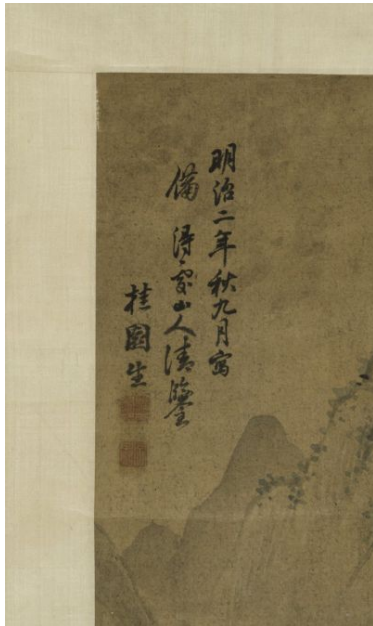 明治二年秋九月寫
備 得山人清鑒
桂園生